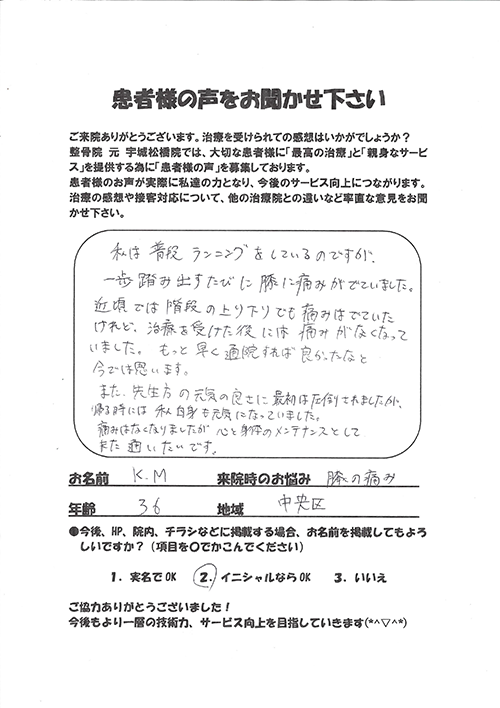 患者様の声をお聞かせ下さい
ご来院ありがとうございます。治療を受けられての感想はいかがでしょうか？
整骨院 元 宇城松橋院では、大切な患者様に「最高の治療」と「親身なサービ
ス」を提供する為に「患者様の声」を募集しております。
患者様のお声が実際に私達の力となり、今後のサービス向上につながります。
治療の感想や接客対応について、他の治療院との違いなど率直な意見をお聞
かせ下さい。
私は普段ランニングをしているのですが、
一歩踏み出すたびに膝に痛みがでていました。
近頃では階段の上り下りでも痛みはでていた
けれど、治療を受けた後には痛みがなくなって
いました。もっと早く通院すれば良かったなと
今では思います。
また、先生方の元気の良さに最初は圧倒されましたが、
帰る時には私自身も元気になっていました。
痛みはなくなりましたが心と身体のメンテナンスとして
また通いたいです。
お名前 K.M 来院時のお悩み 膝の痛み
年齢 36 地域 中央区
●今後、HP、院内、チラシなどに掲載する場合、お名前を掲載してもよろ
しいですか？（項目を〇でかこんでください）
1．実名でOK 2．イニシャルならOK 3．いいえ
ご協力ありがとうございました！
今後もより一層の技術力、サービス向上を目指していきます(*^▽^*)